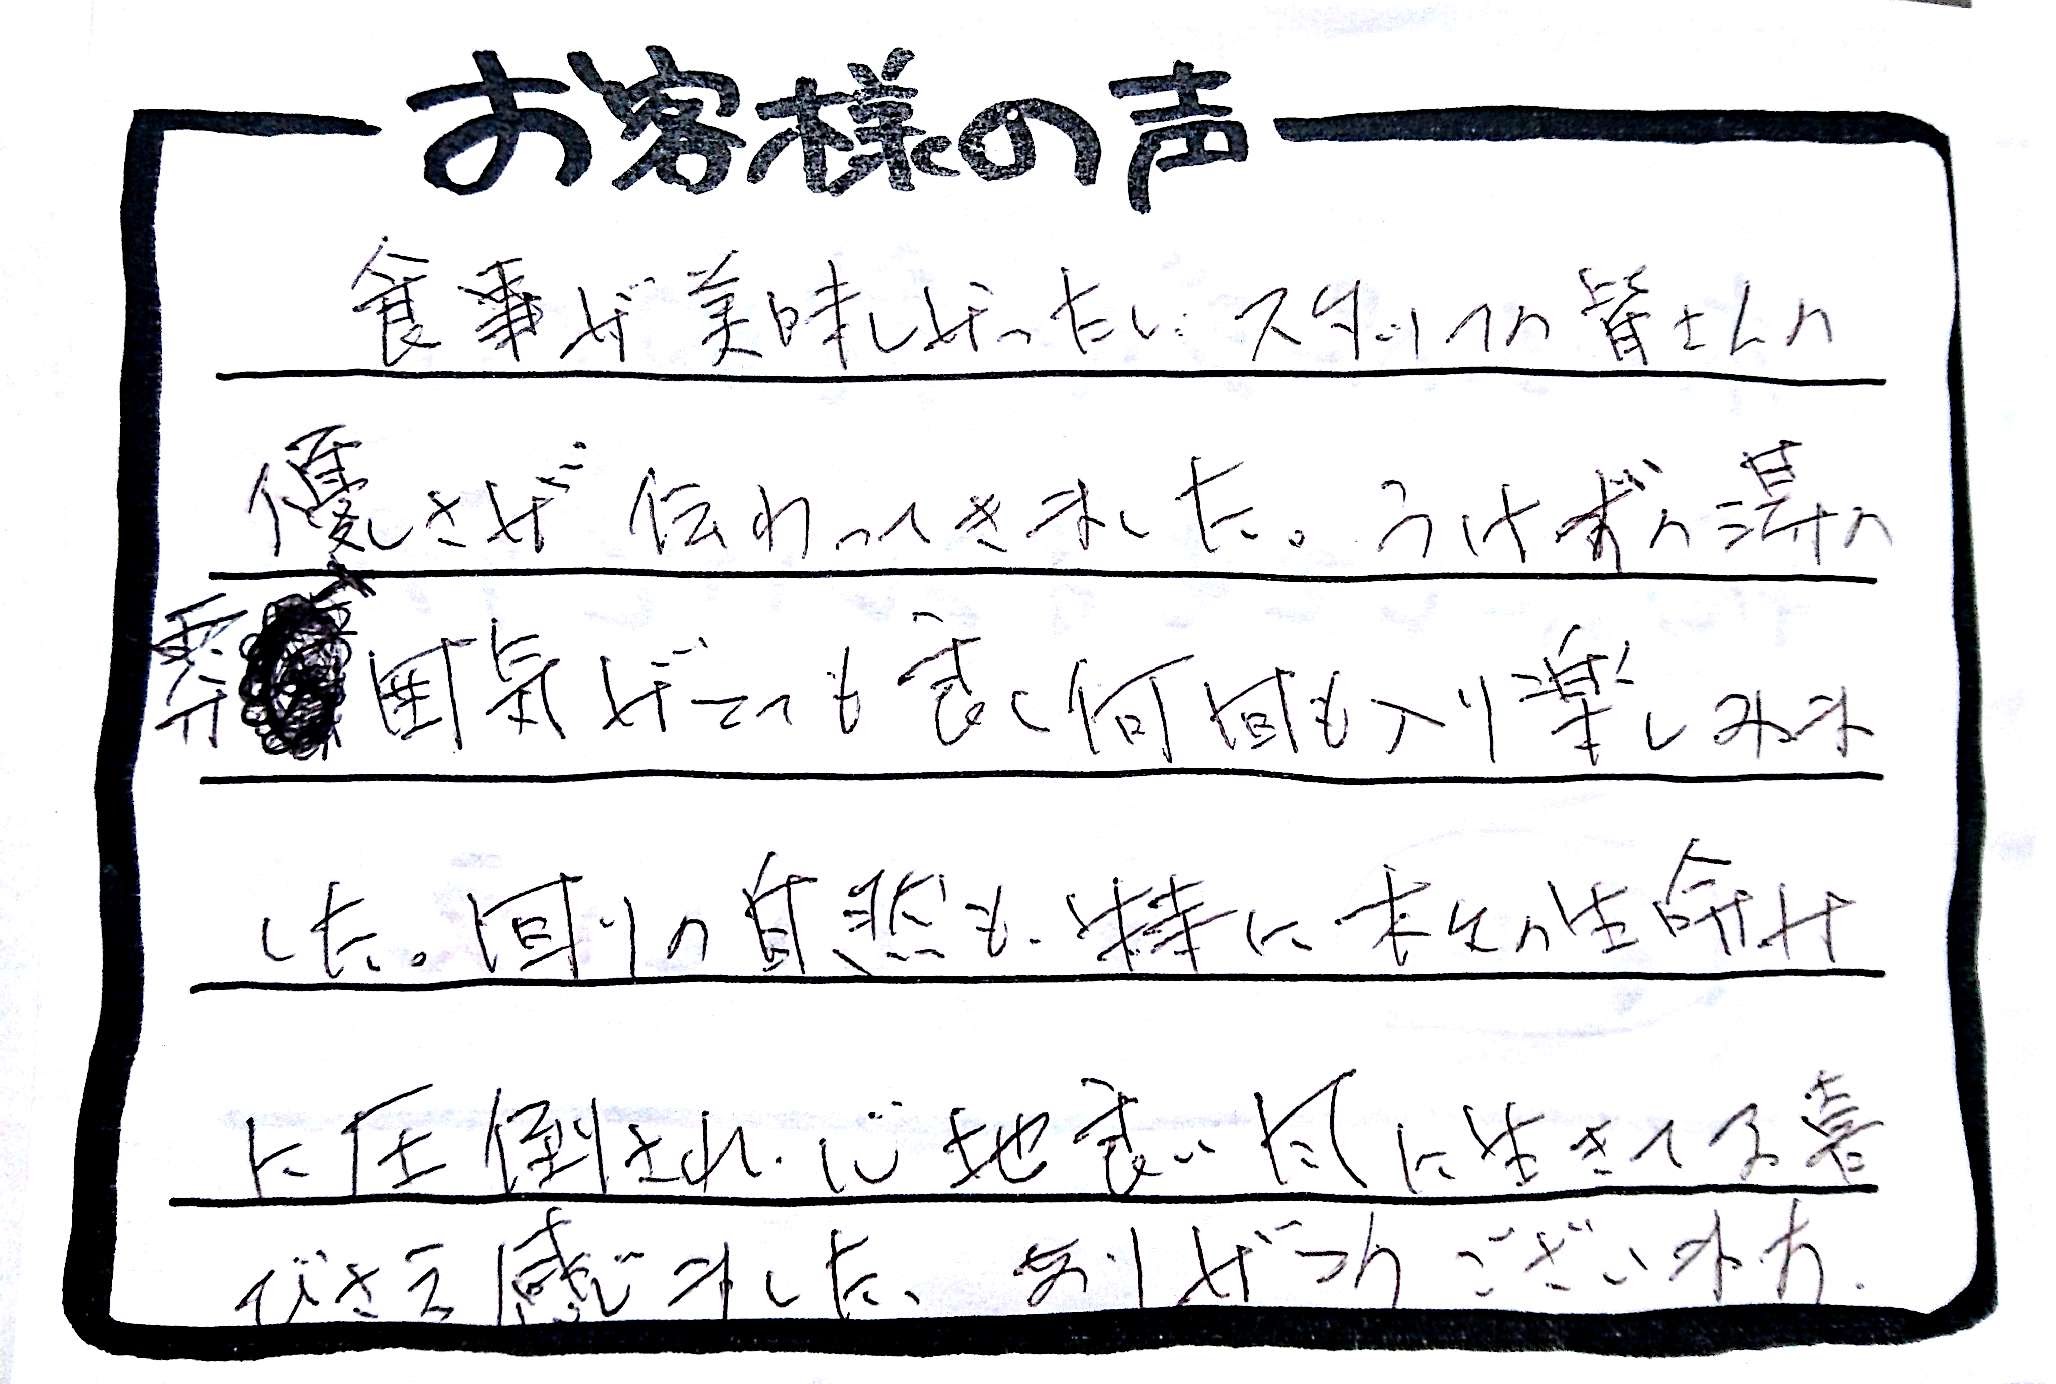 お客様の声
食事が美味しかったし、スタッフの皆さんの
優しさが伝わってきました。うけずの湯の
雰囲気がとっても良く何回も入り楽しみま
した。回りの自然も、特に木々の生命力
に圧倒され、心地良い風に生きてる喜
びさえ感じました、ありがとうございます。